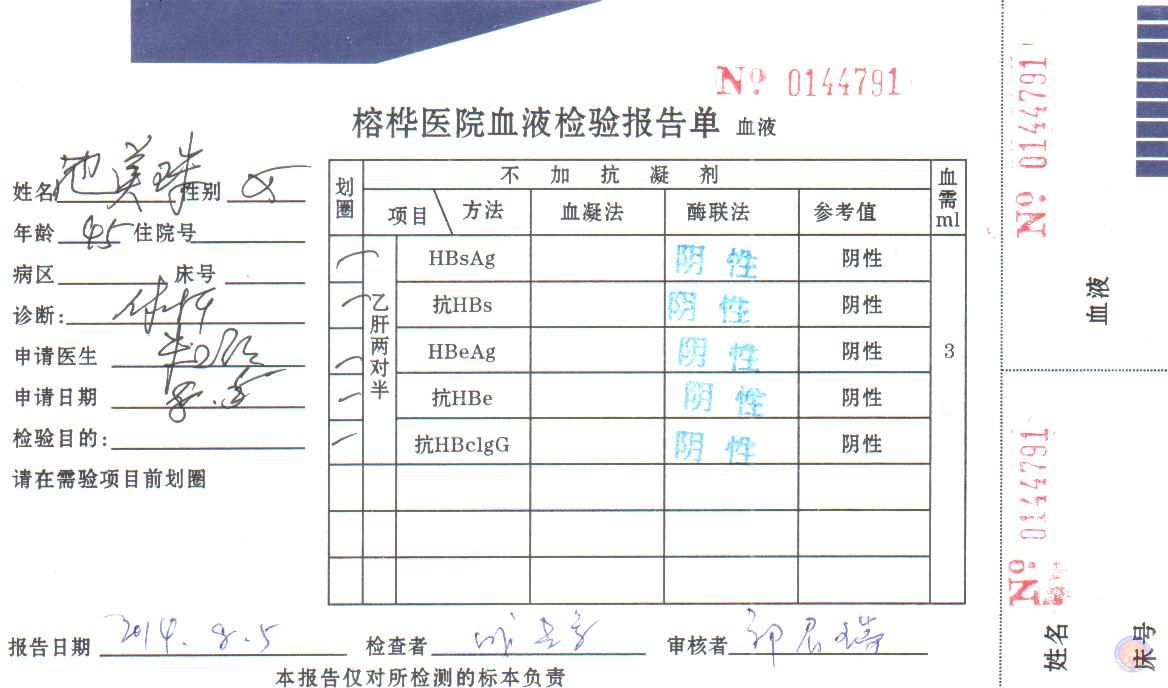 No 0144791
榕桦医院血液检验报告单 血液
姓名 池美珠 性别 女
年龄 45 住院号
病区 床号
诊断: 体检
申请医生
申请日期 8.5
检验目的:
请在需验项目前划圈
划圈 不加抗凝剂 血需ml
项目 方法 血凝法 酶联法 参考值
乙肝两对半
HBsAg 阴性 阴性
抗HBs 阴性 阴性
HBeAg 阴性 阴性 3
抗HBe 阴性 阴性
抗HBclgG 阴性 阴性
报告日期 2014.8.5 检查者 审核者
本报告仅对所检测的标本负责
No 0144791
血液
No 0144791
姓名
床号